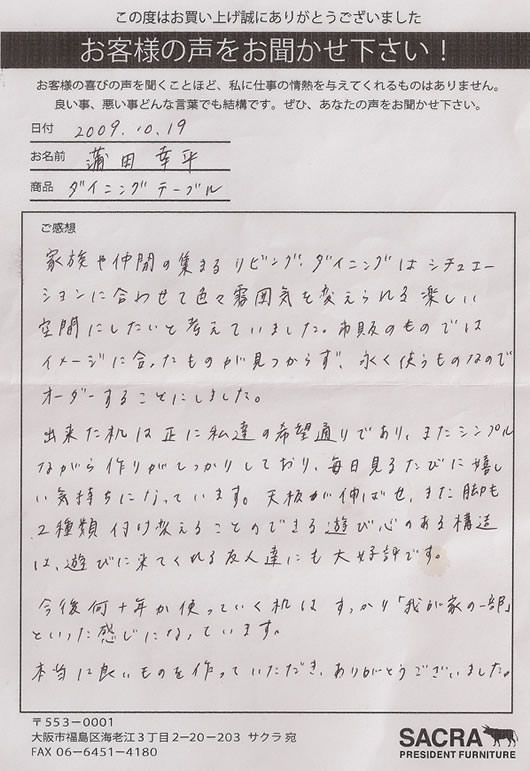 この度はお買い上げ誠にありがとうございました
お客様の声をお聞かせ下さい！
お客様の喜びの声を聞くことほど、私に仕事の情熱を与えてくれるものはありません。
良い事、悪い事どんな言葉でも結構です。ぜひ、あなたの声をお聞かせ下さい。
日付 2009.10.19
お名前 蒲田 幸平
商品 ダイニングテーブル
ご感想
家族や仲間の集まるリビング、ダイニングはシチュエー
ションに合わせて色々雰囲気を変えられる楽しい
空間にしたいと考えていました。市販のものでは
イメージに合ったものが見つからず、永く使うものなので
オーダーすることにしました。
出来た机は正に私達の希望通りであり、またシンプル
ながら作りがしっかりしており、毎日見るたびに嬉し
い気持ちになっています。天板が伸ばせ、また脚も
2種類付け変えることのできる遊び心のある構造
は、遊びに来てくれる友人達にも大好評です。
今後何十年か使っていく机はすっかり「我が家の一部」
といった感じになっています。
本当に良いものを作っていただき、ありがとうございました。
〒553-0001
大阪市福島区海老江3丁目2-20-203 サクラ 宛
FAX 06-6451-4180
SACRA
PRESIDENT FURNITURE